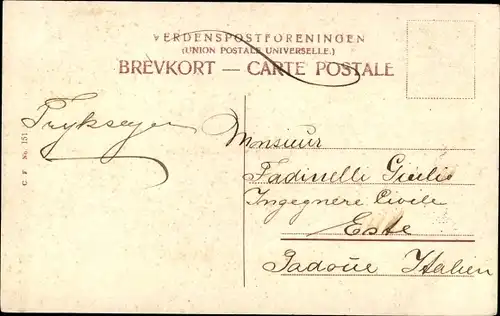 VERDENSPOSTFORENINGEN
(UNION POSTALE UNIVERSELLE.)
BREVKORT — CARTE POSTALE
Tryksager
Monsieur
Fadinelli Giulio
Ingegnere Civile
Este
Padoue Italien
C F No. 151